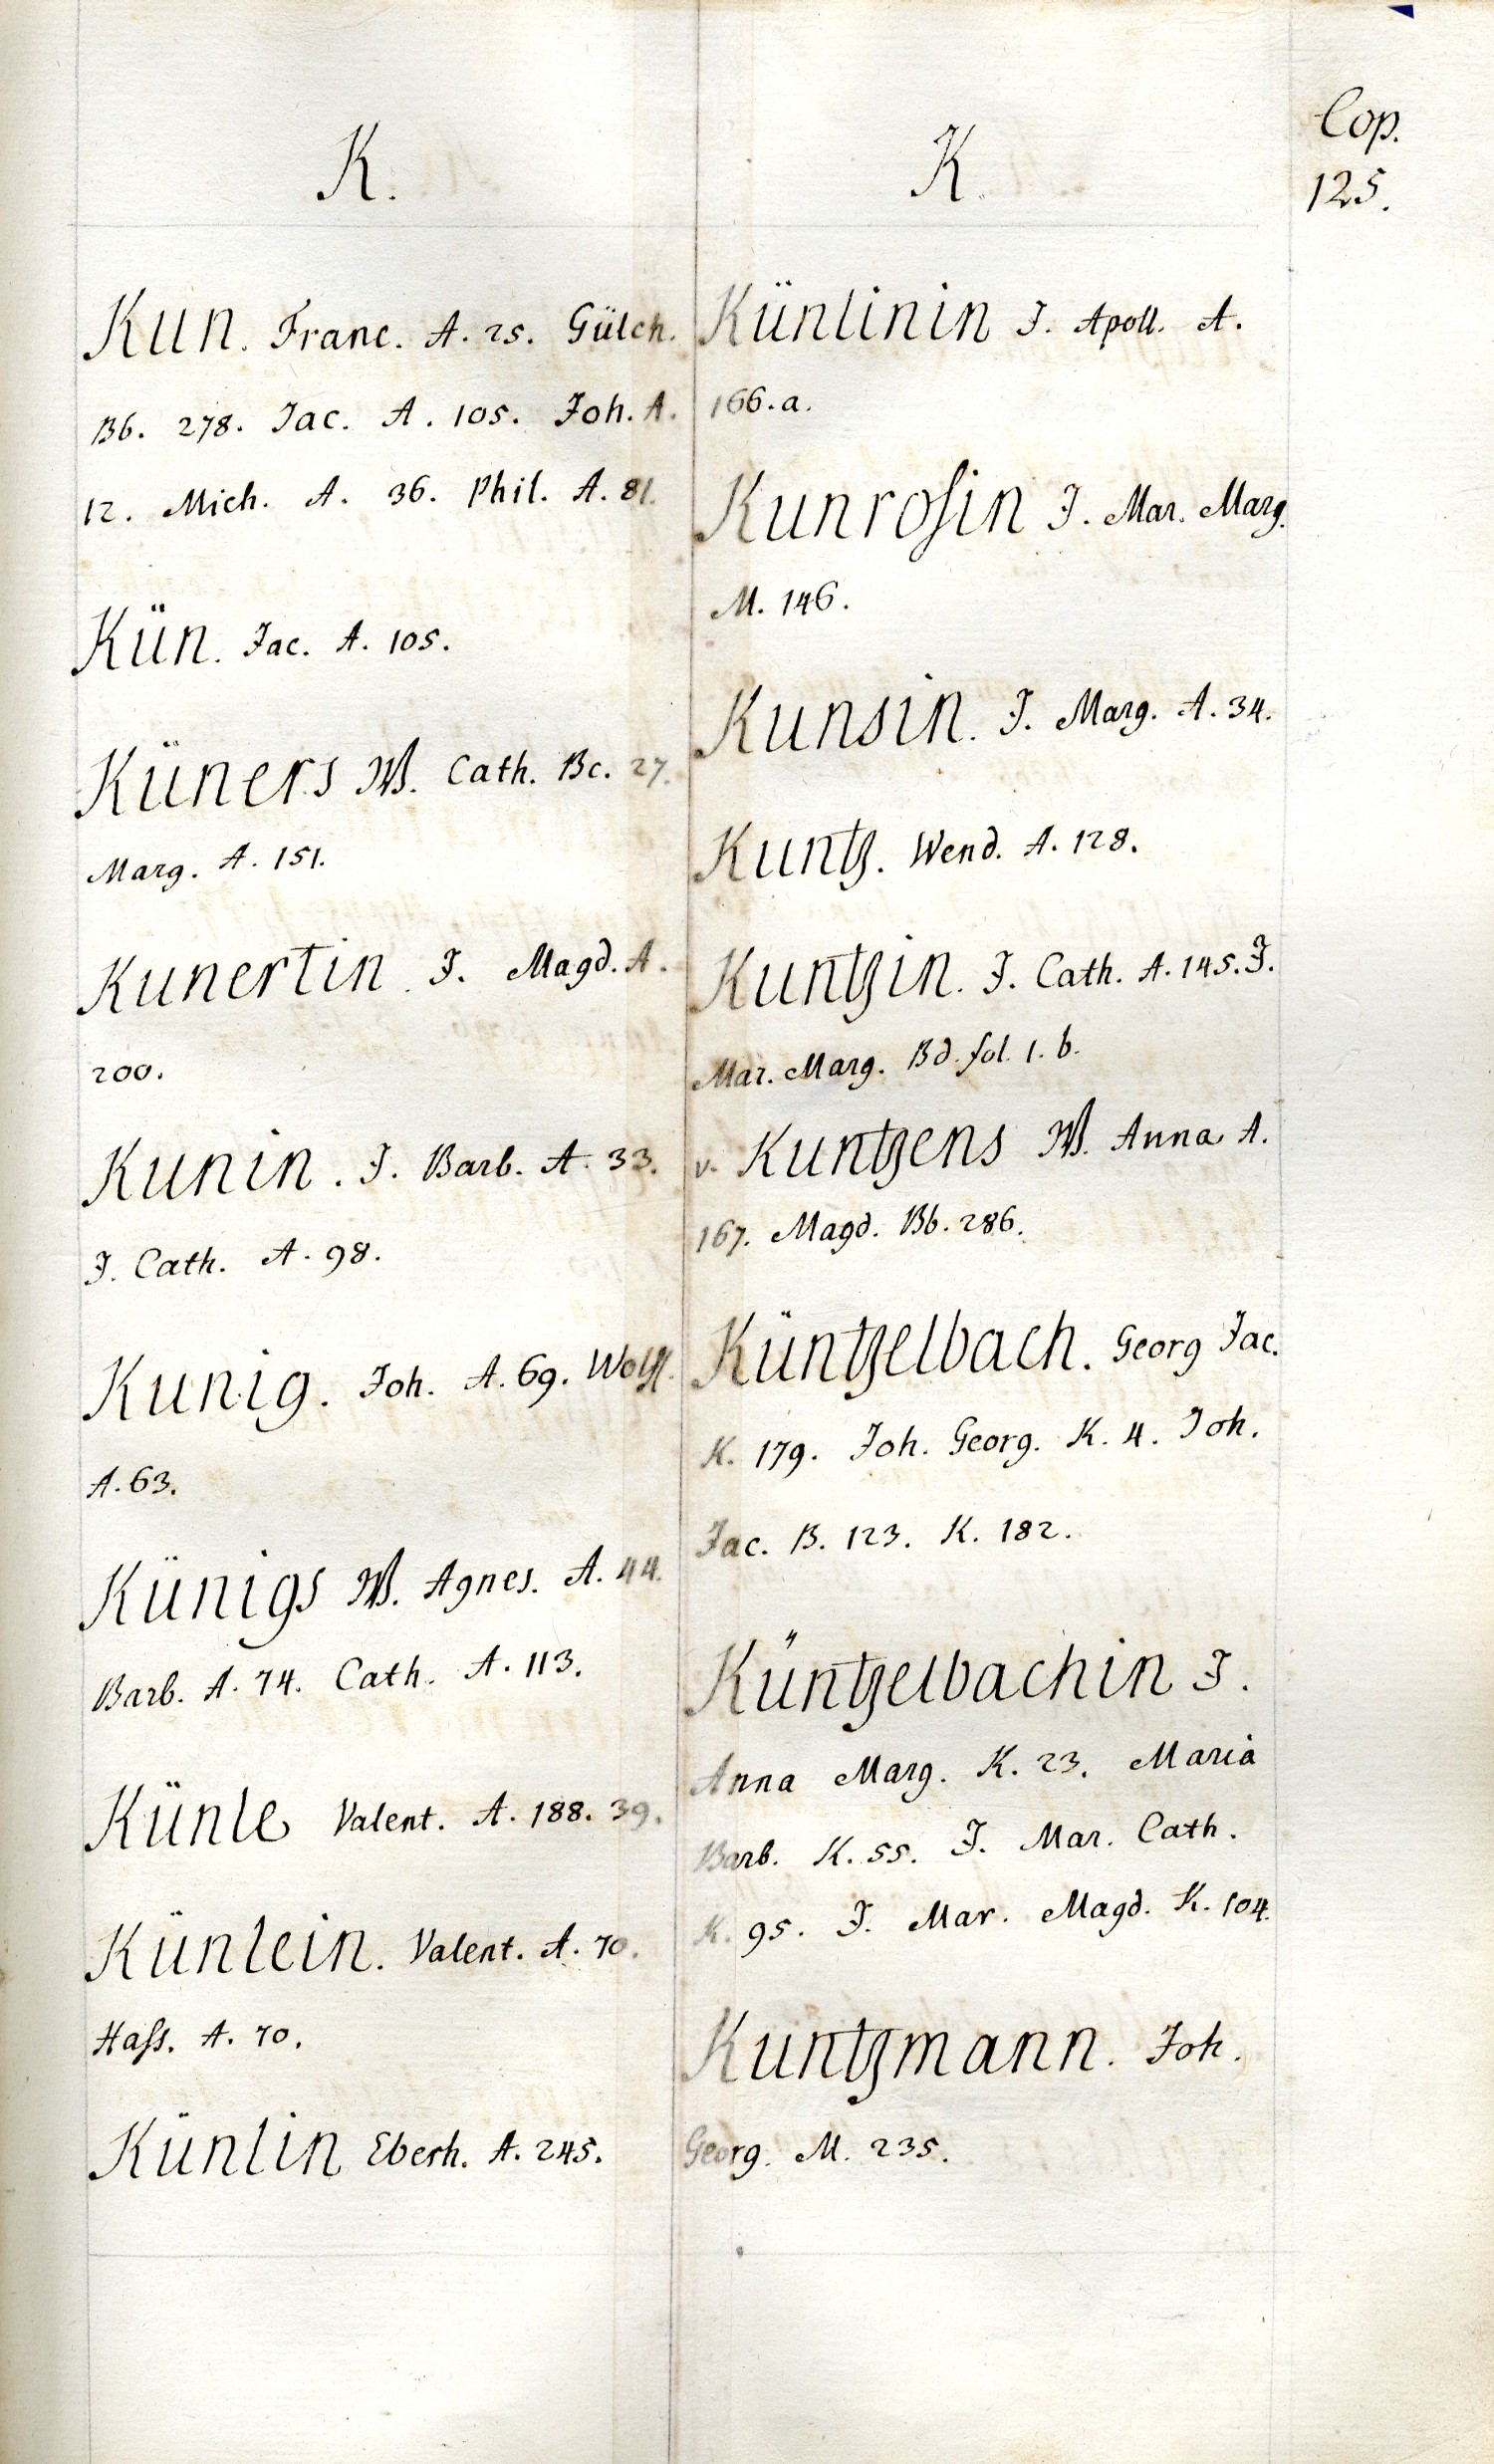 Cop.
125.
K.
Kun. Franc. A. 25. Gülch.
Bb. 278. Jac. A. 105. Joh. A.
12. Mich. A. 36. Phil. A. 81.
Kün. Jac. A. 105.
Küners W. Cath. Bc. 27.
Marg. A. 151.
Kunertin. J. Magd. A.
200.
Kunin. J. Barb. A. 33.
J. Cath. A. 98.
Kunig. Joh. A. 69. Wolff.
A. 63.
Künigs W. Agnes. A. 44.
Barb. A. 74. Cath. A. 113.
Künle Valent. A. 188. 39.
Künlein. Valent. A. 70.
Haſs. A. 70.
Künlin Eberh. A. 245.
K.
Künlinin J. Apoll. A.
166. a.
Kunroſin J. Mar. Marg.
M. 146.
Kunsin. J. Marg. A. 34.
Kuntz. Wend. A. 128.
Kuntzin. J. Cath. A. 145. J.
Mar. Marg. Bd. fol. 1. b.
v. Kuntzens W. Anna A.
167. Magd. Bb. 286.
Küntzelbach. Georg Jac.
K. 179. Joh. Georg. K. 4. Joh.
Jac. B. 123. K. 182.
Küntzelbachin J.
Anna Marg. K. 23. Maria
Barb. K. 55. J. Mar. Cath.
K. 95. J. Mar. Magd. K. 104.
Kuntzmann. Joh.
Georg. M. 235.